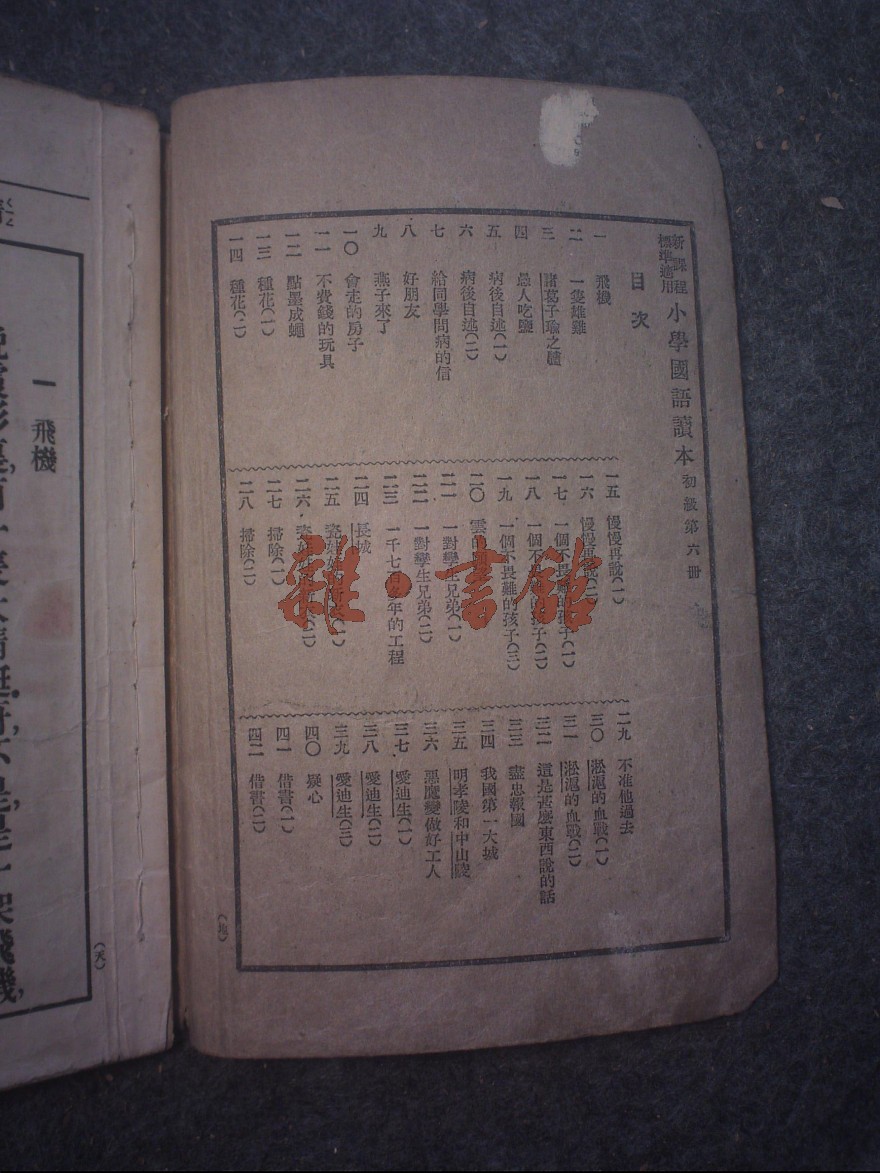 新課程標準適用
小學國語讀本 初級第六冊
目次
一 飛機
二 一隻雄雞
三 諸葛子瑜之驢
四 愚人吃鹽
五 病後自述(一)
六 病後自述(二)
七 給同學問病的信
八 好朋友
九 燕子來了
一〇 會走的房子
一一 不費錢的玩具
一二 點墨成蠅
一三 種花(一)
一四 種花(二)
一五 慢慢再說(一)
一六 慢慢再說(二)
一七 一個不畏難的孩子(一)
一八 一個不畏難的孩子(二)
一九 一個不畏難的孩子(三)
二〇 雲的
二一 一對孿生兄弟(一)
二二 一對孿生兄弟(二)
二三 一千七百年的工程
二四 長城
二五 (一)
二六 (二)
二七 掃除(一)
二八 掃除(二)
二九 不准他過去
三〇 淞滬的血戰(一)
三一 淞滬的血戰(二)
三二 這是甚麼東西說的話
三三 盡忠報國
三四 我國第一大城
三五 明孝陵和中山陵
三六 惡魔變做好工人
三七 愛迪生(一)
三八 愛迪生(二)
三九 愛迪生(三)
四〇 疑心
四一 借書(一)
四二 借書(二)
雜·書館
一 飛機
(天)